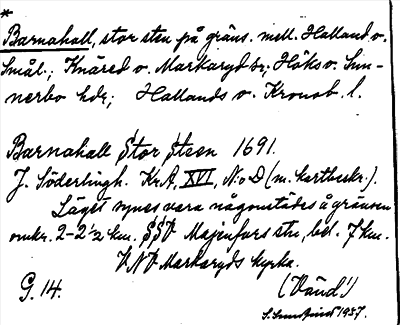 *
Barnahall, stor sten på gräns. mell. Halland o.
Smål.; Knäred o. Markaryd sr; Höks o. Sun-
nerbo hdr; Hallands o. Kronob. l.
Barnahall Stor Steen 1691.
J. Söderlingh. Kr.A, XVI, N:o D (m. kartbeskr.).
Läget synes vara någonstädes å gränsen
omkr. 2-2½ km. SSV Majenfors stn, bel. 7 km.
VNV Markaryds kyrka.
G. 14. (Vänd!)
1937.